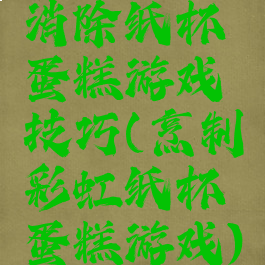 消除纸杯
蛋糕游戏
技巧(烹制
彩虹纸杯
蛋糕游戏)